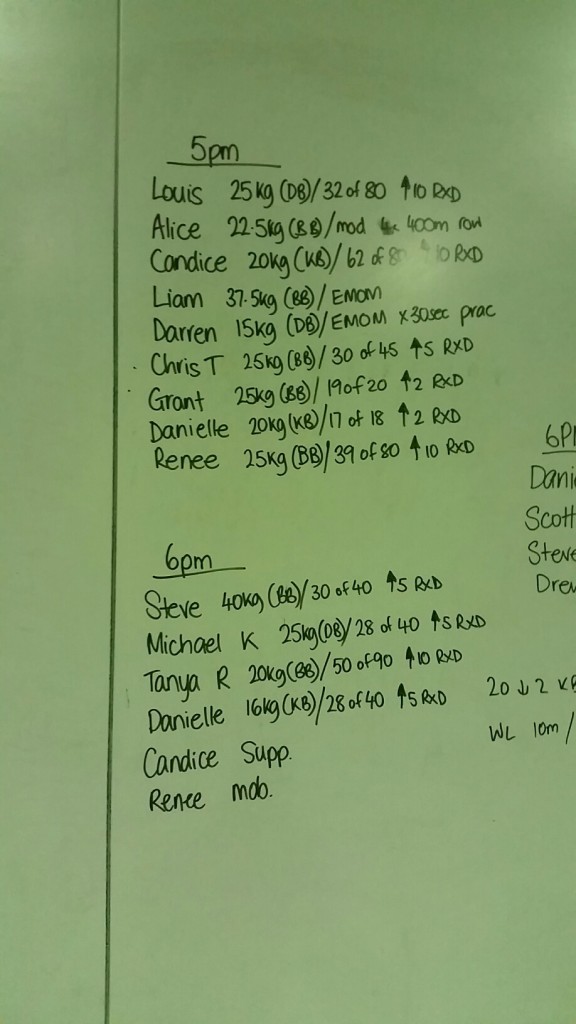 5pm
Louis 25kg (DB)/32 of 80 ↑10 RXD
Alice 22.5kg (BB)/mod 400m row
Candice 20kg (KB)/62 of 80 ↑10 RXD
Liam 37.5kg (BB)/EMOM
Darren 15kg (DB)/EMOM x30sec prac
Chris T 25kg (BB)/30 of 45 ↑5 RXD
Grant 25kg (BB)/19 of 20 ↑2 RXD
Danielle 20kg (KB)/17 of 18 ↑2 RXD
Renee 25kg (BB)/39 of 80 ↑10 RXD
6pm
Steve 40kg (BB)/30 of 40 ↑5 RXD
Michael K 25kg (DB)/28 of 40 ↑5 RXD
Tanya R 20kg (BB)/50 of 90 ↑10 RXD
Danielle 16kg (KB)/28 of 40 ↑5 RXD
Candice Supp.
Renee mob.
6P
Dani
Scott
Steve
Drew
20 ↓ 2 KB
WL 10m /